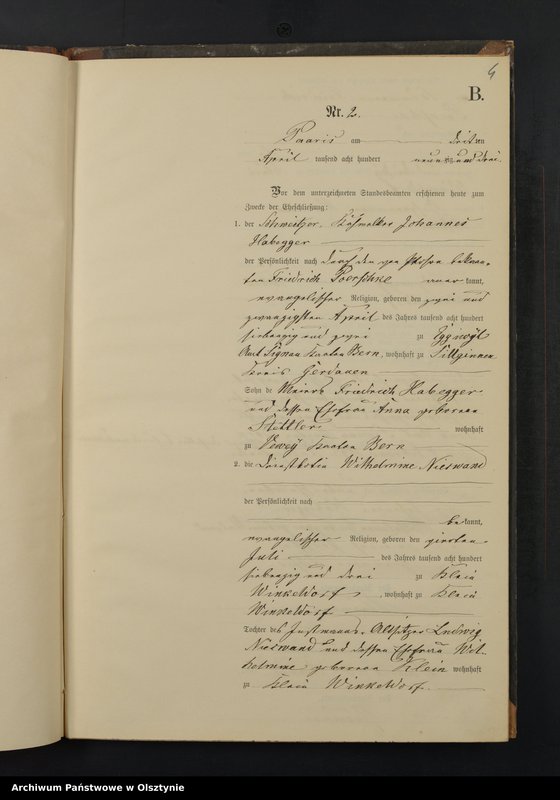 4
B.
Nr. 2.
Paaris am dritten
April tausend acht hundert neunzig und drei.
Vor dem unterzeichneten Standesbeamten erschienen heute zum
Zwecke der Eheschließung:
1. der Schweitzer, Johannes
Habegger
der Persönlichkeit nach durch den von Person bekann-
ten Friedrich Poerschke anerkannt,
evangelischer Religion, geboren den zwei und
zwanzigsten April des Jahres tausend acht hundert
siebenzig und zwei zu Eggiwyl
Amt Signau Kanton Bern, wohnhaft zu Sillginnen
Kreis Gerdauen
Sohn de Friedrich Habegger
und dessen Ehefrau Anna geborenen
Stettler wohnhaft
zu Vevey Kanton Bern
2. die Dienstbotin Wilhelmine Nieswand
der Persönlichkeit nach
bekannt,
evangelischer Religion, geboren den
Juli des Jahres tausend acht hundert
siebenzig und drei zu Klein
Winkeldorf, wohnhaft zu Klein
Winkeldorf
Tochter des Instmanns, Altsitzer Ludwig
Nieswand und dessen Ehefrau Wil-
helmine geborenen Klein wohnhaft
zu Klein Winkeldorf.
Archiwum Państwowe w Olsztynie